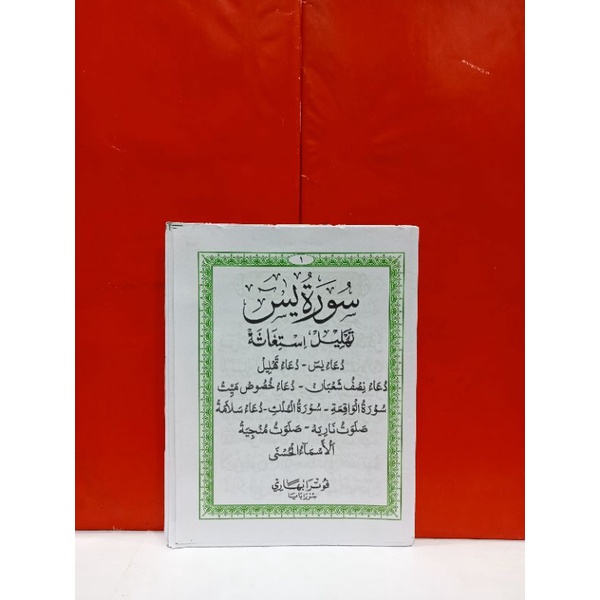 ١
سُوْرَةُ يٰسٓ
تَهْلِيْل اِسْتِغَاثَةْ
دُعَاءْ يٰسٓ - دُعَاءْ تَهْلِيْل
دُعَاءْ نِصْفُ شَعْبَانْ - دُعَاءْ خُصُوْصْ مَيِّتْ
سُوْرَةُ الْوَاقِعَةْ - سُوْرَةُ الْمُلْك - دُعَاءْ سَلَامَةْ
صَلَوٰتْ نَارِيَةْ - صَلَوٰتْ مُنْجِيَةْ
اَلْأَسْمَآءُ الْحُسْنَى
فوترا بهاري
سورابايا